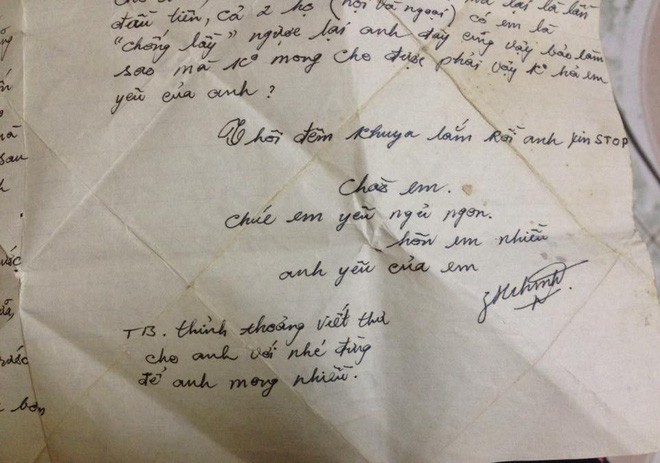 đầu tiên, cả 2 họ (nội và ngoại) có em là
"chống lầy" ngược lại anh đây cũng vậy bảo làm
sao mà k° mong cho được phải vậy k° hả em
yêu của anh?
Thôi đêm khuya lắm rồi anh xin STOP
Chào em.
chúc em yêu ngủ ngon.
hôn em nhiều
anh yêu của em
TB. thỉnh thoảng viết thư
cho anh với nhé đừng
để anh mong nhiều.